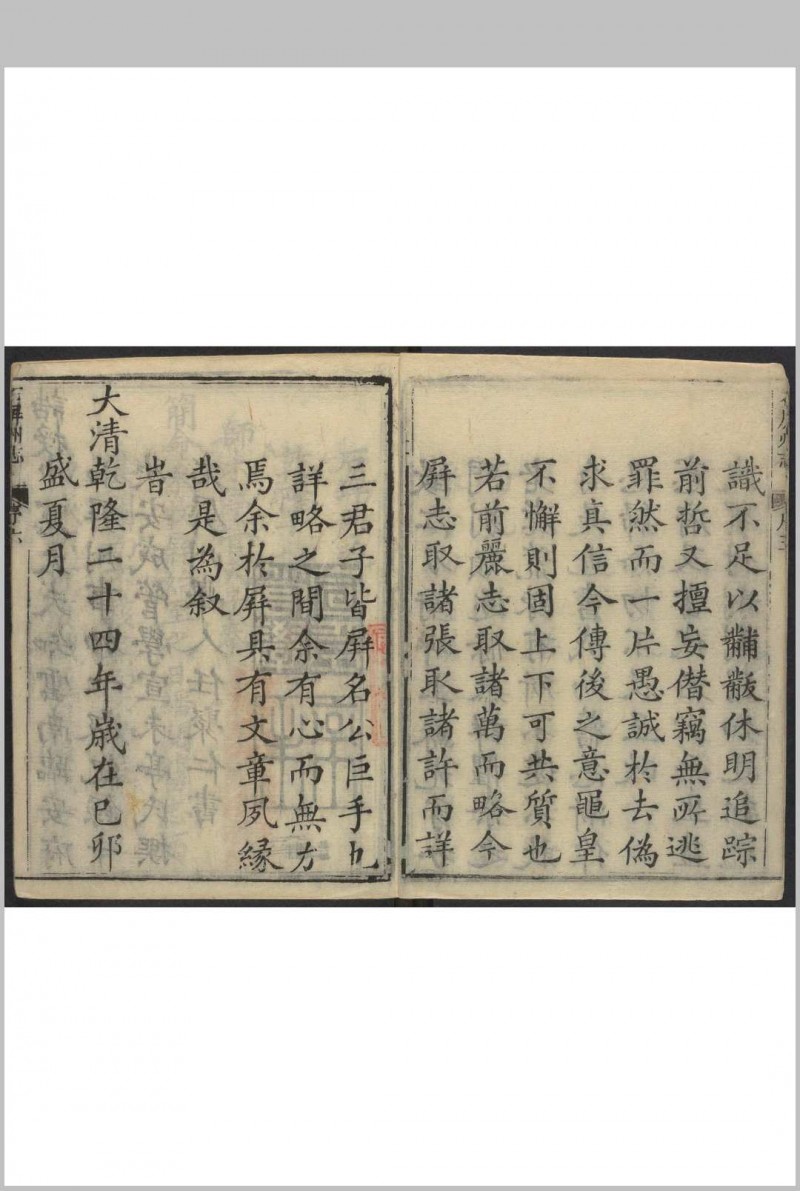 識不足以黼黻休明追踪
前哲又擅妄僭竊無所逃
罪然而一片愚誠於去偽
求真信今傳後之意黽皇
不懈則固上下可共質也
若前麗志取諸萬而略今
屏志取諸張取諸許而詳
三君子皆屏名公巨手凢
詳略之間余有心而無方
焉余於屏具有文章夙緣
哉是為叙
旹
大清乾隆二十四年歲在已卯
盛夏月
屏州志